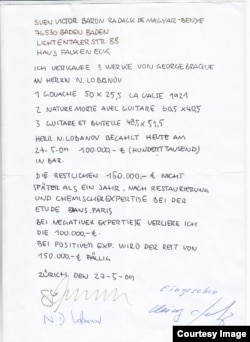 SVEN VICTOR BARON RADACK DE MAGYAR-BENYE
76530 BADEN BADEN
LICHTENTALERSTR. 88
HAUS FALKEN ECK
ICH VERKAUFE 3 WERKE VON GEORGE BRAQUE
AN HERRN N. LOBANOV
1 GOUACHE 50 x 25,5 LA VALSE 1921
2 NATURE MORTE AVEC GUITARE 60,5 x 49,5
3 GUITARE ET BUTEILLE 48,5 x 51,5
HERR N. LOBANOV BEZAHLT HEUTE AM
27-5-09 100.000,-€ (HUNDERTTAUSEND)
IN BAR.
DIE RESTLICHEN 150.000,-€ NICHT
SPÄTER ALS EIN JAHR, NACH RESTAURIERUNG
UND CHEMISCHER EXPERTISE BEI DER
ETUDE BANS, PARIS
BEI NEGATIVER EXPERTIESE VERLIERE ICH
DIE 100.000,-€.
BEI POSITIVEN EXP. WIRD DER REST VON
150.000,-€ FÄLLIG
ZÜRICH, DEN 27-5-09
Eingesehen
N. D. Lobanov
Courtesy Image